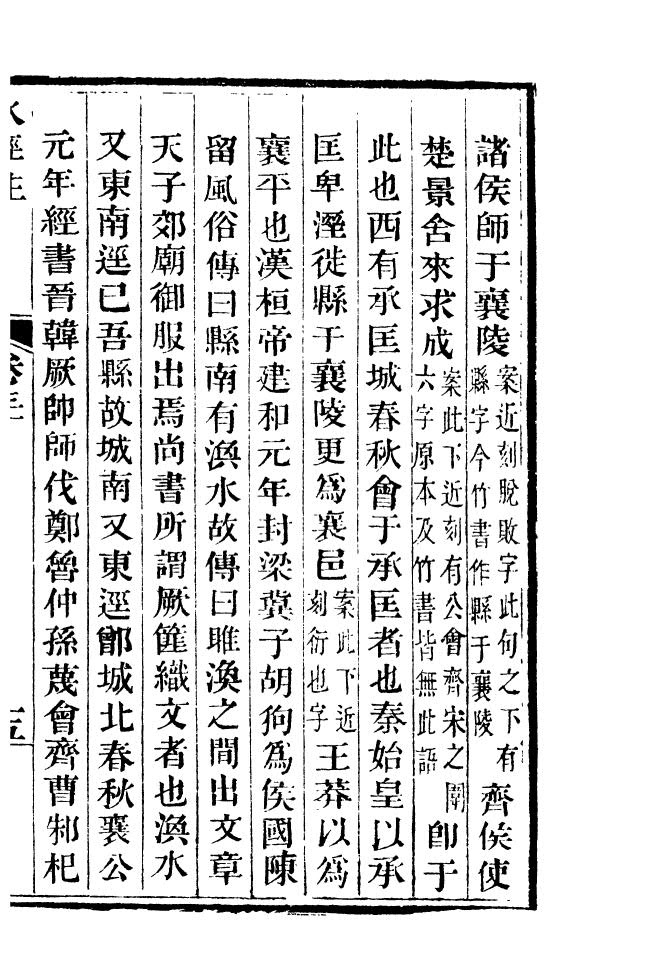 諸侯師于襄陵案近刻脫敗字此句之下有縣字今竹書作縣于襄陵齊侯使
楚景舍來求成案此下近刻有公會齊宋之圍六字原本及竹書皆無此語卽于
此也西有承匡城春秋會于承匡者也秦始皇以承
匡卑溼徙縣于襄陵更爲襄邑案此下近刻衍也字王莽以爲
襄平也漢桓帝建和元年封梁冀子胡狗爲侯國陳
留風俗傳曰縣南有渙水故傳曰睢渙之間出文章
天子郊廟御服出焉尚書所謂厥篚織文者也渙水
又東南逕已吾縣故城南又東逕鄫城北春秋襄公
元年經書晉韓厥帥師伐鄭魯仲孫蔑會齊曹邾杞
水經注